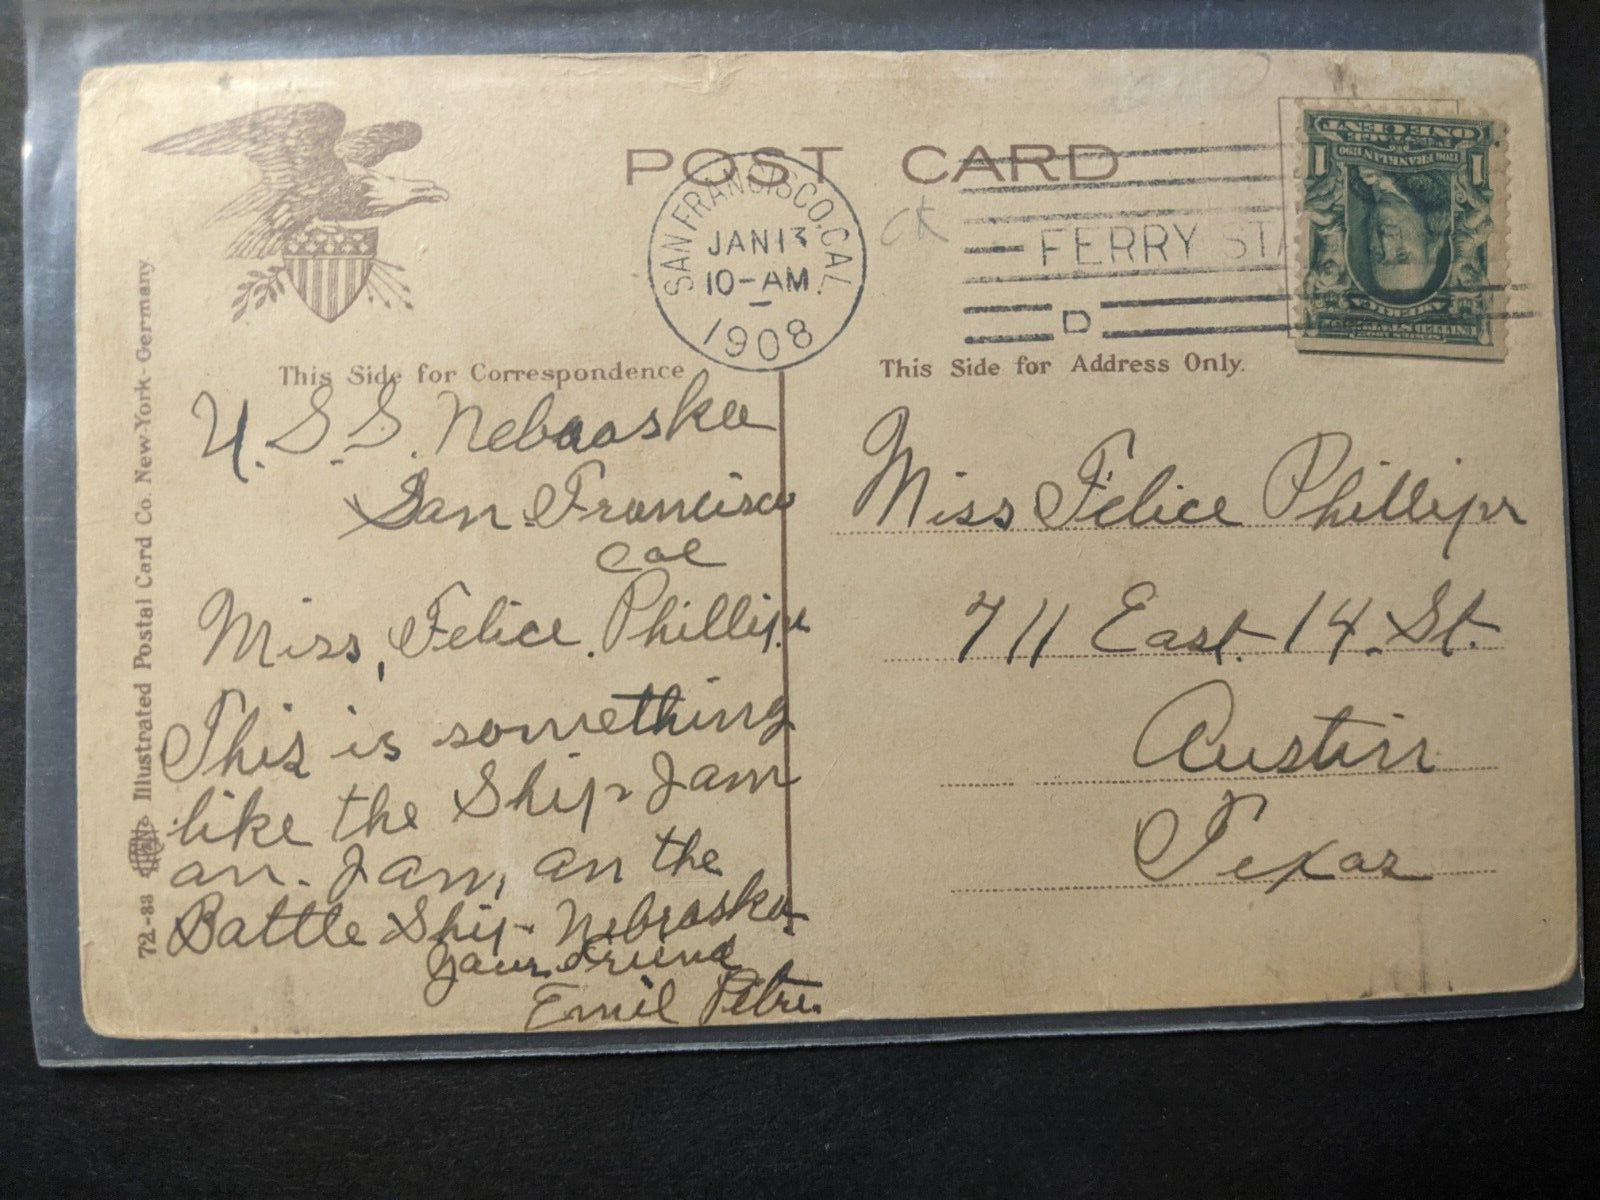 POST CARD
SAN FRANCISCO, CAL.
JAN 13
10-AM
1908
FERRY STA
D
ck
ONE CENT
1
1
UNITED STATES OF AMERICA
This Side for Correspondence
This Side for Address Only.
72-83 Illustrated Postal Card Co. New-York-Germany
U.S.S. Nebraska
San Francisco
Cal
Miss, Felice. Phillips
This is something
like the Ship I am
on. I am, on the
Battle Ship Nebraska
Your Friend
Emil Petri.
Miss Felice Phillips
711 East. 14. St.
Austin
Texas